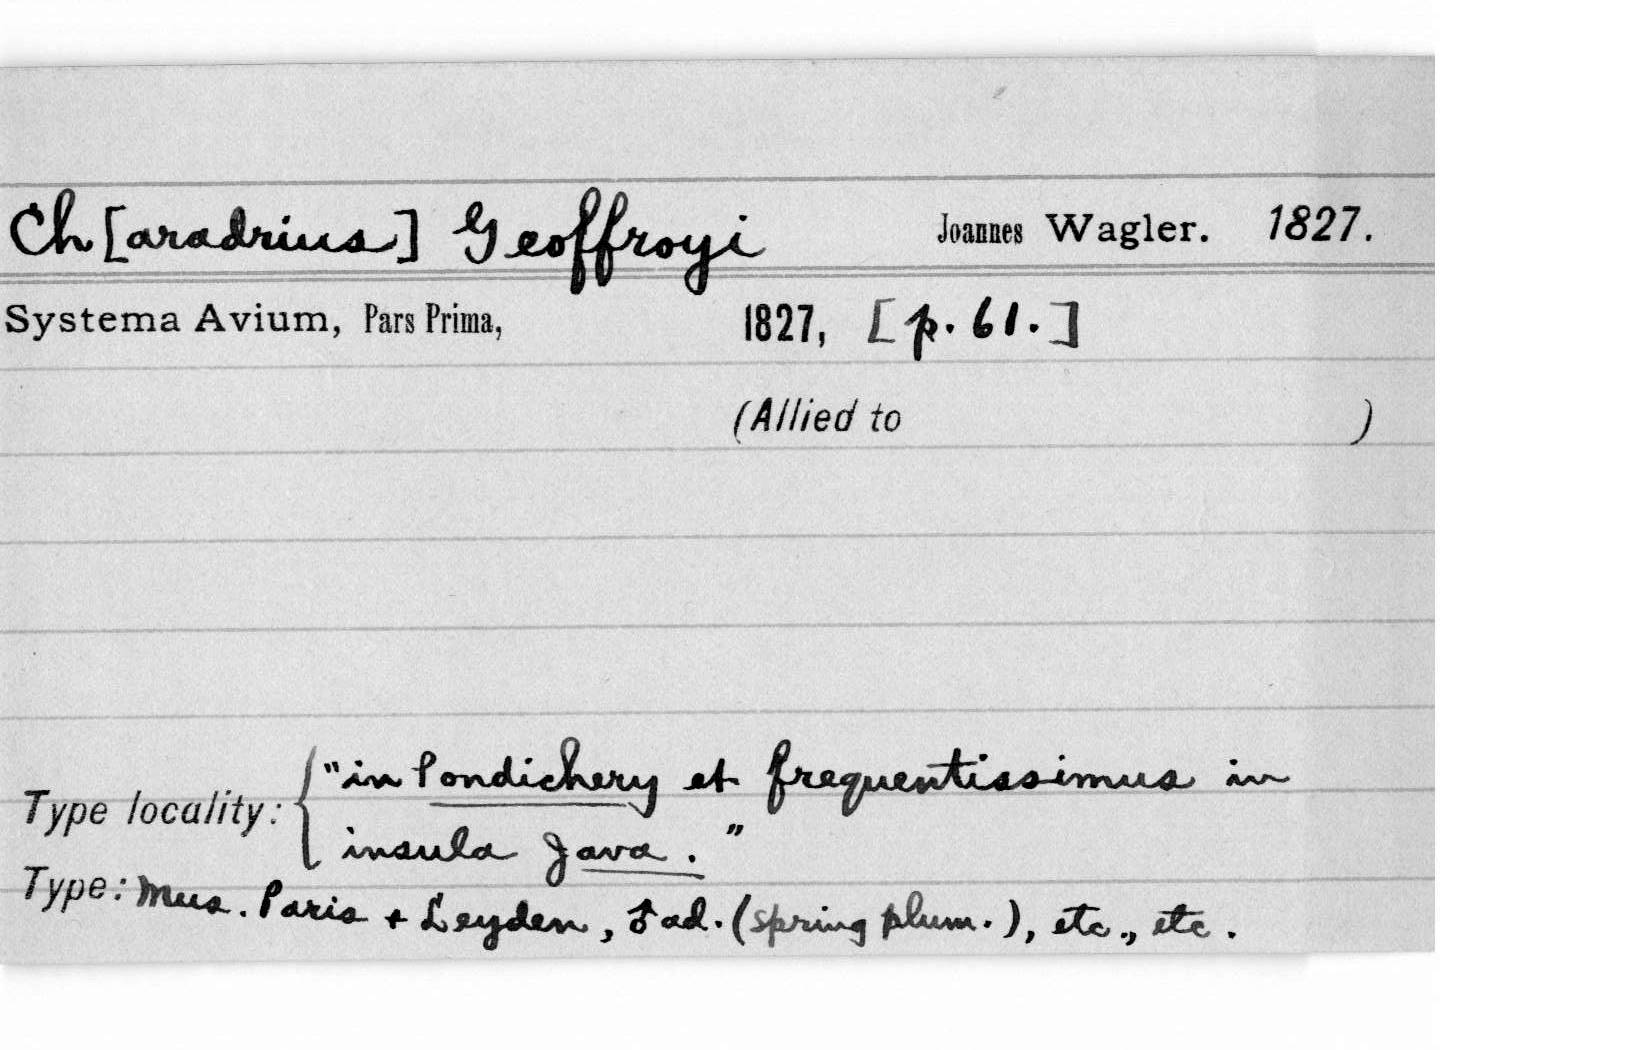 Ch[aradrius] Geoffroyi Joannes Wagler. 1827.
Systema Avium, Pars Prima, 1827, [p. 61.]
(Allied to )
Type locality: { "in Pondichery et frequentissimus in
insula Java."
Type: Mus. Paris + Leyden, ♂ ad. (spring plum.), etc., etc.